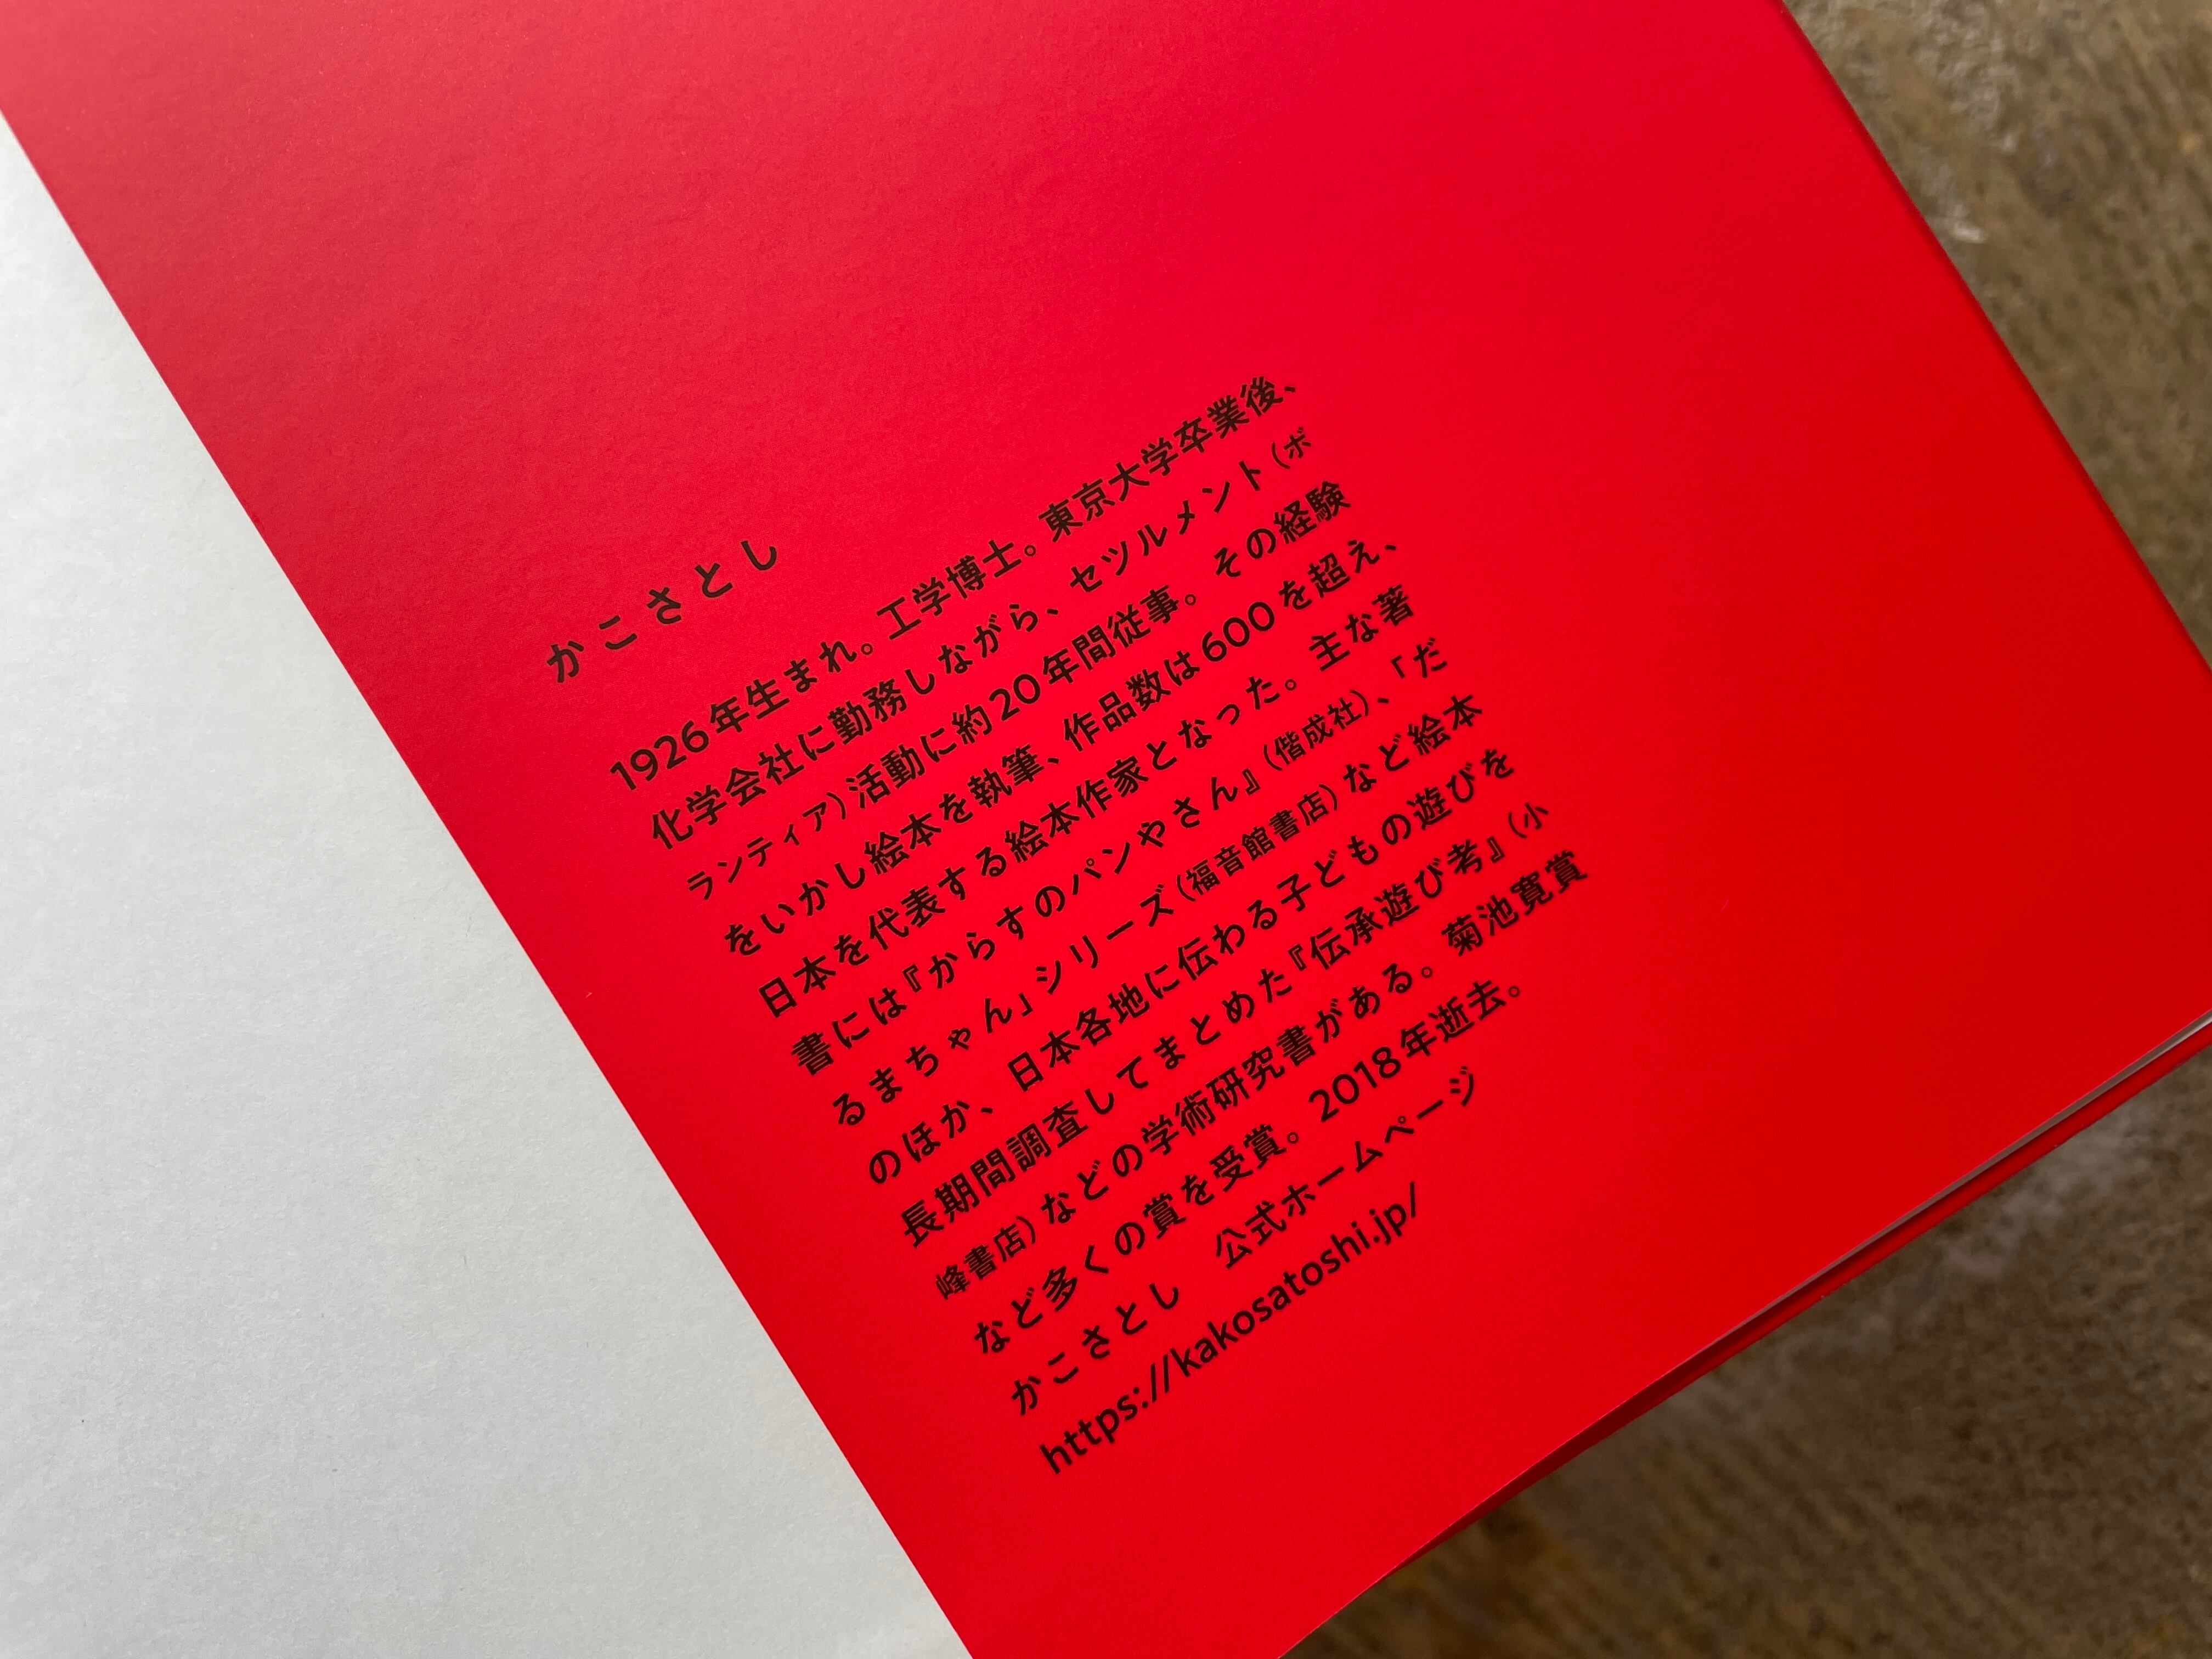 かこさとし
1926年生まれ。工学博士。東京大学卒業後、
化学会社に勤務しながら、セツルメント（ボ
ランティア）活動に約20年間従事。その経験
をいかし絵本を執筆、作品数は600を超え、
日本を代表する絵本作家となった。主な著
書には『からすのパンやさん』（偕成社）、「だ
るまちゃん」シリーズ（福音館書店）など絵本
のほか、日本各地に伝わる子どもの遊びを
長期間調査してまとめた『伝承遊び考』（小
峰書店）などの学術研究書がある。菊池寛賞
など多くの賞を受賞。2018年逝去。
かこさとし　公式ホームページ
https://kakosatoshi.jp/